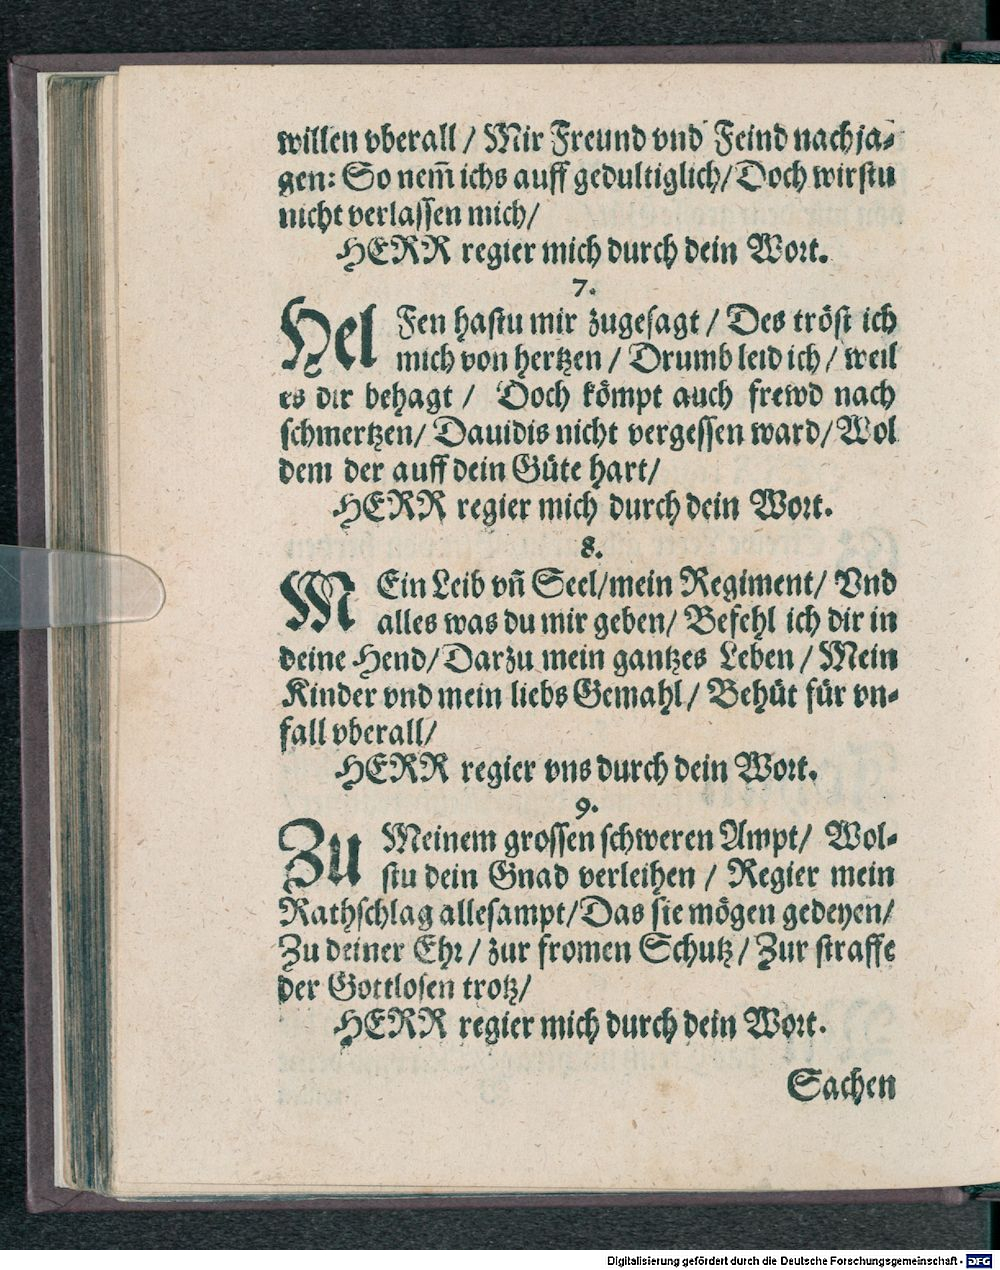 willen vberall / Mir Freund vnd Feind nachja-
gen: So nem̃ ichs auff gedultiglich/ Doch wirstu
nicht verlassen mich/
HERR regier mich durch dein Wort.
7.
Hel Fen hastu mir zugesagt / Des tröst ich
mich von hertzen / Drumb leid ich / weil
es dir behagt / Doch kömpt auch frewd nach
schmertzen/ Dauidis nicht vergessen ward/ Wol
dem der auff dein Güte hart/
HERR regier mich durch dein Wort.
8.
MEin Leib vñ Seel/mein Regiment/ Vnd
alles was du mir geben/ Befehl ich dir in
deine Hend/ Darzu mein gantzes Leben / Mein
Kinder vnd mein liebs Gemahl/ Behüt für vn-
fall vberall/
HERR regier vns durch dein Wort.
9.
Zu Meinem grossen schweren Ampt/ Wol-
stu dein Gnad verleihen / Regier mein
Rathschlag allesampt/Das sie mögen gedeyen/
Zu deiner Ehr / zur fromen Schutz/ Zur straffe
der Gottlosen trotz/
HERR regier mich durch dein Wort.
Sachen
Digitalisierung gefördert durch die Deutsche Forschungsgemeinschaft - DFG